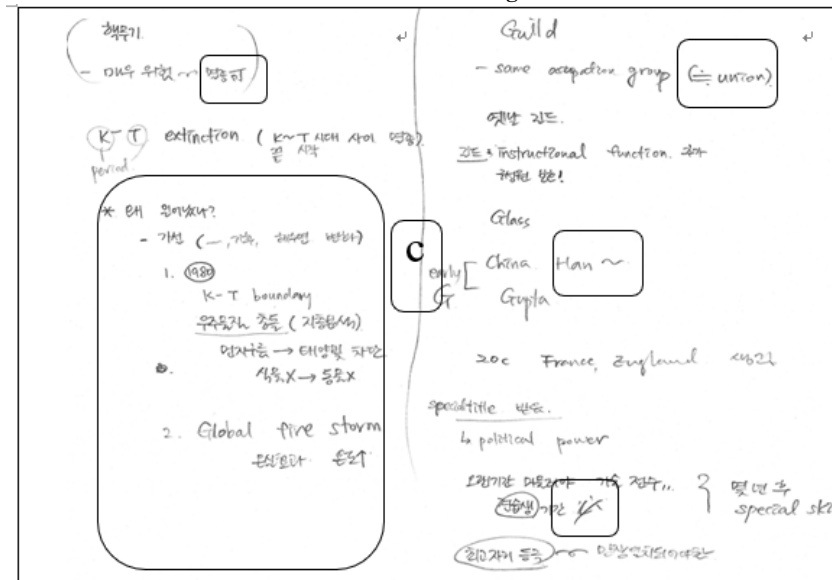 핵무기
- 매우 위험 ~ 멸종 可
K-T extinction (K~T 시대 사이 멸종)
끝 시작
period
* 왜 일어났나?
- 가설 (一, 기후, 해수면 변화)
1. 1980
K-T boundary
우주물질 충돌 (지층분석)
먼지구름 → 태양빛 차단
식물X → 동물X
2. Global fire storm
온실효과 온도↑
C
Guild
- same occupation group (≒ union)
옛날 길드.
길드 instructional function.
Glass
early
China Han ~
G Gupta
20c France, England
special title
↳ political power
오랜기간 머물러야 기술 전수..
견습생 기간
몇 년 후
special sk
최고자리 등극 ~